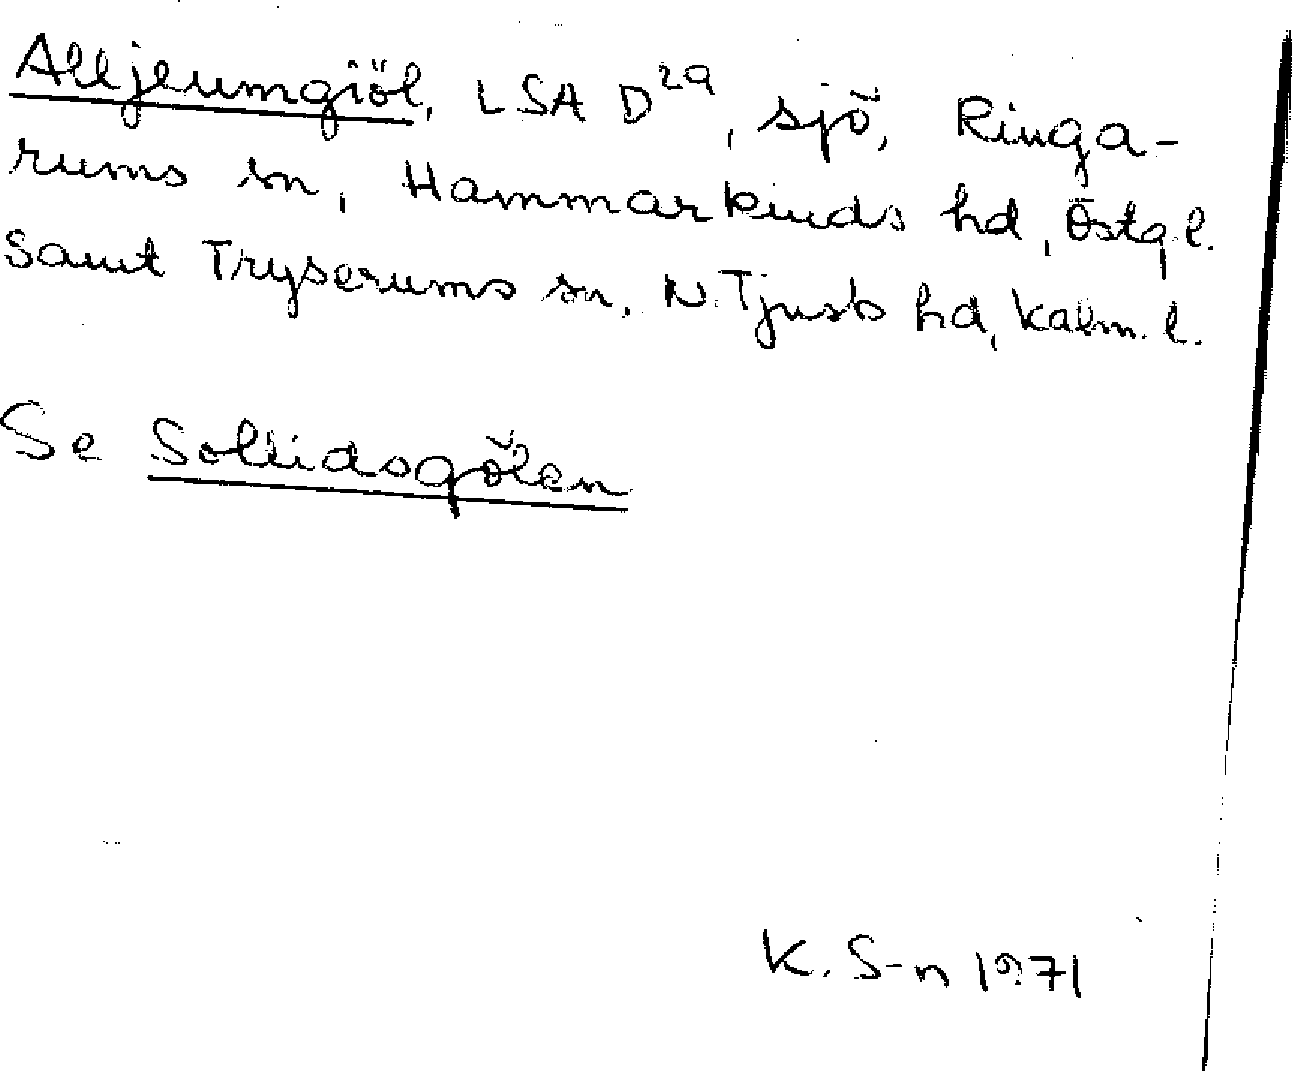 Alljeumgiöl, LSA D29, sjö, Ringa-
rums sn, Hammarkinds hd, Östg.l.
samt Tryserums sn, N. Tjusts hd, Kalm. l.
Se Sollidsgölen
K. S-n 1971